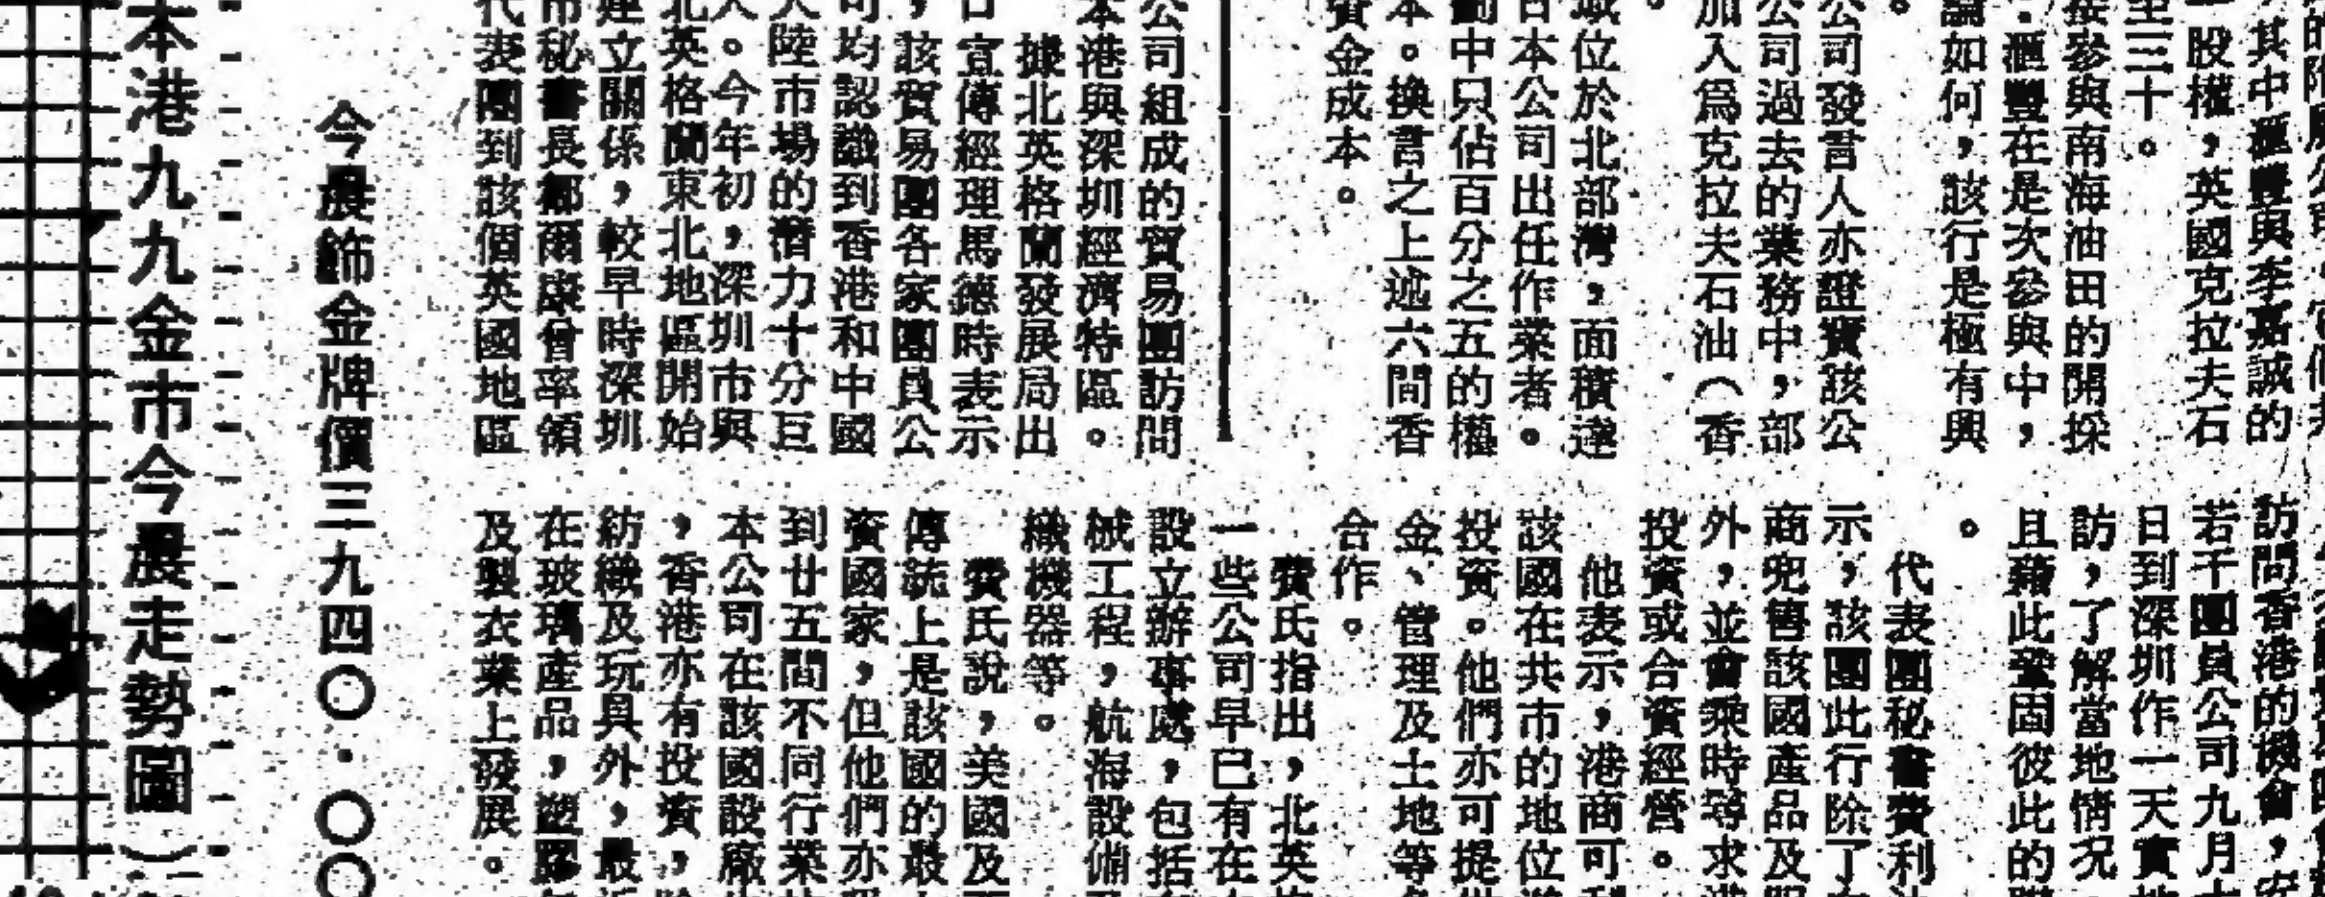 其中滙豐與李嘉誠的
股權，英國克拉夫石
至三十。
接參與南海油田的開採
：滙豐在是次參與中，
論如何，該行是極有興
。
公司發言人亦證實該公
公司過去的業務中，部
加入爲克拉夫石油（香
。
域位於北部灣，面積達
日本公司出任作業者。
劃中只佔百分之五的權
本。換言之上述六間香
資金成本。
公司組成的貿易團訪問
本港與深圳經濟特區。
據北英格蘭發展局出
口宣傳經理馬德時表示
，該貿易團各家團員公
司均認識到香港和中國
大陸市場的潛力十分巨
大。今年初，深圳市與
北英格蘭東北地區開始
建立關係，較早時深圳
市秘書長鄒爾康曾率領
代表團到該個英國地區
訪問香港的機會，安
若干團員公司九月十
日到深圳作一天實地
訪，了解當地情況，
且藉此鞏固彼此的聯
。
代表團秘書費利
示，該團此行除了
商兜售該國產品及服
外，並會乘時尋求港
投資或合資經營。
他表示，港商可利
該國在共市的地位
投資。他們亦可提供
金、管理及土地等
合作。
費氏指出，北英格
一些公司早已有在
設立辦事處，包括
械工程，航海設備及
織機器等。
費氏說，美國及
傳統上是該國的最
資國家，但他們亦
到廿五間不同行業
本公司在該國設廠
，香港亦有投資，除
紡織及玩具外，最近
在玻璃產品，塑膠
及製衣業上發展。
今晨飾金牌價三九四〇．〇〇
本港九九金市今晨走勢圖）